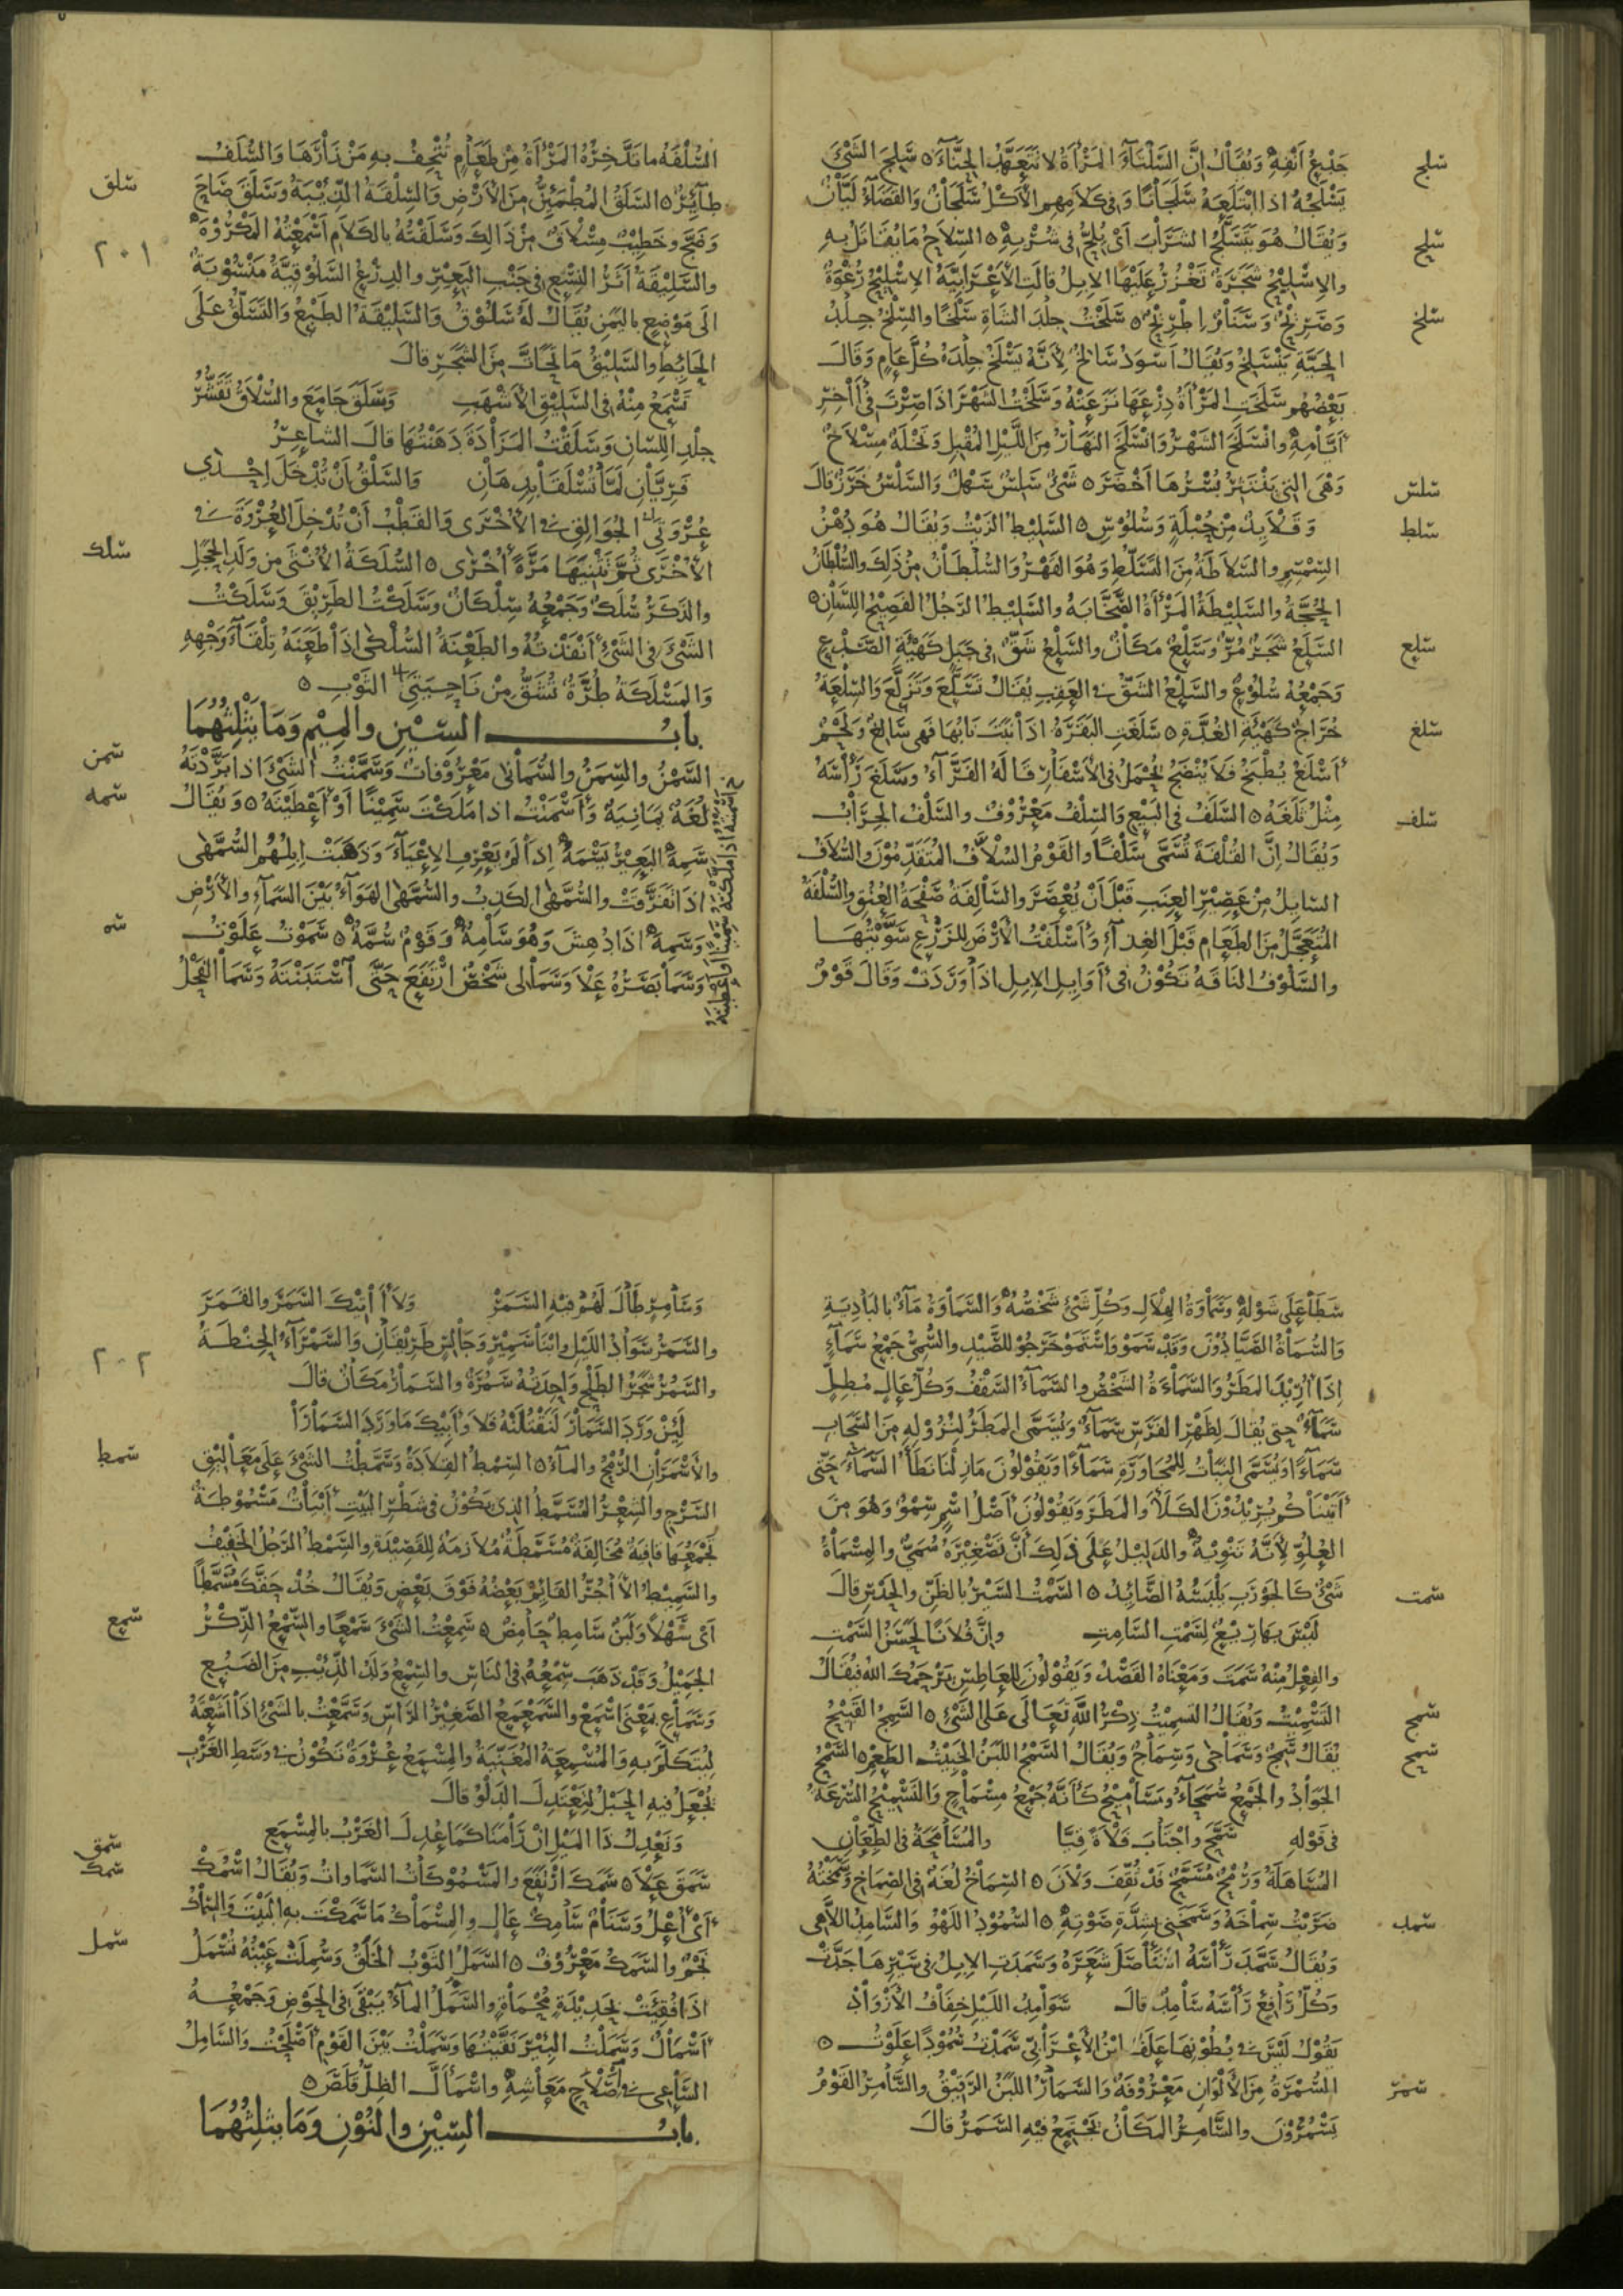 جَدَعَ أَنْفَهُ وَيُقَالُ إِنَّ السَّلْتَاءَ الْمَرْأَةُ لَا تَتَعَهَّدُ الْحِنَّاءَ ه سَلِجَ الشَّيْءَ
سلج
يَسْلَجُهُ اذا ابْتَلَعَهُ سَلَجَانًا وَفِي كَلَامِهِم الْأَكْلُ سَلَجَانٌ وَالْقَضَاءُ لَيَّانٌ
وَيُقَالُ هُوَ يَتَسَلَّجُ الشَّرَابَ أَيْ يُلِحُّ فِي شُرْبِهِ ه السِّلَاحُ مَا يُقَاتَلُ بِهِ
سلح
والإِسْلِيحُ شَجَرَةٌ تَغْزُرُ عَلَيْهَا الإِبِلُ قَالَتِ الْأَعْرَابِيَّةُ الإِسْلِيحُ رُغْوَةٌ
وَصَرِيحٌ وَسَنَامٌ إِطْرِيحٌ ه سَلَخْتُ جِلْدَ الشَّاةِ سَلْخًا والسِّلْخُ جِلْدُ
سلخ
الْحَيَّةِ يَنْسَلِخُ وَيُقَالُ أَسْوَدُ سَالِخٌ لِأَنَّهُ يَسْلَخُ جِلْدَهُ كُلَّ عَامٍ وَقَالَ
بَعْضُهُم سَلَخَتِ الْمَرْأَةُ دِرْعَهَا نَزَعَتْهُ وَسَلَخْتُ الشَّهْرَ اذَا صِرْتَ فِي آخِرِ
أَيَّامِهِ وانْسَلَخَ الشَّهْرُ وَانْسَلَخَ النَّهَارُ مِنَ اللَّيْلِ الْمُقْبِلِ وَنَخْلَةٌ مِسْلَاخٌ
وَهْيَ الَّتِي يَنْتَثِرُ بُسْرُهَا أَخْضَرَ ه شَيْءٌ سَلِسٌ سَهْلٌ وَالسَّلْسُ خَرَزٌ قَالَ
سلس
وَقَلَائِدٌ مِنْ حُبْلَةٍ وَسُلُوسِ ه السَّلِيطُ الزَّيْتُ وَيُقَالُ هُوَ دُهْنُ
سلط
السِّمْسِمِ والسَّلَاطَةُ مِنَ التَّسَلُّطِ وَهُوَ الْقَهْرُ وَالسُّلْطَانُ مِنْ ذَلِكَ والسُّلْطَانُ
الْحُجَّةُ والسَّلِيطَةُ الْمَرْأَةُ الصَّخَّابَةُ والسَّلِيطُ الرَّجُلُ الْفَصِيحُ اللِّسَانِ ه
السَّلَعُ شَجَرٌ مُرٌّ وَسَلْعٌ مَكَانٌ والسَّلْعُ شَقٌّ فِي جَبَلٍ كَهَيْئَةِ الصَّدْعِ
سلع
وَجَمْعُهُ سُلُوعٌ والسَّلَعُ الشَّقُّ فِي الْعَقِبِ يُقَالُ تَسَلَّعَ وَتَزَلَّعَ وَالسِّلْعَةُ
خُرَاجٌ كَهَيْئَةِ الْغُدَّةِ ه سَلَغَتِ الْبَقَرَةُ اذَا نَبَتَ نَابُهَا فَهِي سَالِغٌ وَلَحْمٌ
سلغ
أَسْلَغُ يُطْبَخُ فَلَا يَنْضَجُ قَالَهُ الْفَرَّاءُ وَسَلَغَ رَأْسَهُ
مِثْلُ ثَلَغَهُ ه السَّلَفُ فِي الْبَيْعِ وَالسِّلْفُ مَعْرُوفٌ والسَّلْفُ الْجِرَابُ
سلف
وَيُقَالُ إِنَّ الْقُلْفَةَ تُسَمَّى سُلْفًا والْقَوْمُ السُّلَّافُ الْمُتَقَدِّمُونَ وَالسُّلَافُ
السَّايِلُ مِنْ عَصِيرِ الْعِنَبِ قَبْلَ أَنْ يُعْصَرَ والسَّالِفَةُ صَفْحَةُ الْعُنُقِ والسُّلْفَةُ
الْمُتَعَجَّلُ مِنَ الطَّعَامِ قَبْلَ الْغِدَاءِ وَأَسْلَفْتُ الْأَرْضَ لِلزَّرْعِ سَوَّيْتُهَا
والسَّلُوفُ النَّاقَةُ تَكُونُ فِي أَوَايِلِ الإِبِلِ اذَا وَرَدَتْ وَقَالَ قَوْمٌ
السُّلْفَةُ ما تَدَّخِرُهُ الْمَرْأَةُ مِنْ طَعَامٍ تُتْحِفُ بِهِ مَنْ زَارَهَا وَالسُّلَفُ
طَائِرٌ ه السَّلَقُ الْمُطْمَئِنُّ مِنَ الْأَرْضِ وَالسِّلْقَةُ الذِّئْبَةُ وَسَلَقَ صَاحَ
سلق
وَضَجَّ وخَطِيبٌ مِسْلَاقٌ مِنْ ذَالِكَ وَسَلَقْتُهُ بِالْكَلَامِ أَسْمَعْتُهُ الْمَكْرُوهَ
٢٠١
والسَّلِيقَةُ أَثَرُ النِّسْعِ فِي جَنْبِ الْبَعِيرِ والدِّرْعُ السَّلُوقِيَّةُ مَنْسُوبَةٌ
الَى مَوْضِعٍ بِالْيَمَنِ يُقَالُ لَهُ سَلُوقُ وَالسَّلِيقَةُ الطَّبْعُ وَالتَّسَلُّقُ عَلَى
الْحَائِطِ والسَّلِيقُ مَا تَحَاتَّ مِنَ الشَّجَرِ قَالَ
تَسْمَعُ مِنْهُ فِي السَّلِيقِ الْأَشْهَبِ وَسَلَقَ جَامَعَ والسُّلَاقُ تَقَشُّرُ
جِلْدِ اللِّسَانِ وَسَلَقْتُ الْمَزَادَةَ دَهَنْتُهَا قَالَ الشَّاعِرُ
فَرِيَّانِ لَمَّا تُسْلَقَا بِدِهَانِ وَالسَّلْقُ أَنْ تُدْخِلَ إِحْدَى
عُرْوَتَيِ الْجُوَالِقِ فِي الْأُخْرَى وَالْقَطْبُ أَنْ تُدْخِلَ الْعُرْوَةَ فِي
الْأُخْرَى ثُمَّ تَثْنِيَهَا مَرَّةً أُخْرَى ه السُّلَكَةُ الْأُنْثَى مِنْ وَلَدِ الْحَجَلِ
سلك
والذَّكَرُ سُلَكٌ وَجَمْعُهُ سِلْكَانٌ وَسَلَكْتُ الطَّرِيقَ وَسَلَكْتُ
الشَّيْءَ فِي الشَّيْءِ أَنْفَذْتُهُ والطَّعْنَةُ السُّلْكَى اذَا طَعَنَهُ تِلْقَاءَ وَجْهِهِ
وَالْمَسْلَكَةُ طُرَّةٌ تُشَقُّ مِنْ نَاحِيَتَيِ الثَّوْبِ ه
بابُ السِّيْنِ والْمِيْمِ وَمَا يَثْلِثُهُمَا
السَّمْنُ والسِّمَنُ والسُّمَانَى مَعْرُوفَاتٌ وَسَمَّنْتُ الشَّيْءَ اذا بَرَّدْتَهُ
سمن
لُغَةٌ يَمَانِيَةٌ وَأَسْمَنْتُ اذا مَلَكْتَ سَمِيْنًا أَوْ أَعْطَيْتَهُ ه وَيُقَالُ
سمه
سَمِهَ الْبَعِيرُ يَسْمَهُ إِذَا لَمْ يَعْرِفِ الإِعْيَاءَ وَذَهَبَتْ إِبِلُهُمُ السُّمَّهَى
اذَا تَفَرَّقَتْ والسُّمَّهَى الْكَذِبُ والسُّمَّهَى الْهَوَاءُ بَيْنَ السَّمَاءِ والْأَرْضِ
وَسَمِهَ اذَا دَهِشَ وَهُوَ سَامِهٌ وَقَوْمٌ سُمَّهٌ ه سَمَوْتُ عَلَوْتُ
سمه
وَسَمَا بَصَرُهُ عَلَا وَسَمَا لِي شَخْصٌ ارْتَفَعَ حَتَّى اسْتَثْبَتُّهُ وَسَمَا الْفَحْلُ
سَطَا عَلَى شَوْلِهِ وَسَمَاوَةُ الْهِلَالِ وَكُلِّ شَيْءٍ شَخْصُهُ وَالسَّمَاوَةُ مَاءٌ بِالْبَادِيَةِ
وَالسُّمَاةُ الصَّيَّادُونَ وَقَدْ سَمَوْا وَاسْتَمَوْا خَرَجُوا لِلصَّيْدِ والسُّمِيُّ جَمْعُ سَمَاءٍ
إِذَا أُرِيدَ الْمَطَرُ وَالسَّمَاءَةُ الشَّخْصُ والسَّمَاءُ السَّقْفُ وَكُلُّ عَالٍ مُطِلٍّ
سَمَاءٌ حَتَّى يُقَالَ لِظَهْرِ الْفَرَسِ سَمَاءٌ وَيُسَمَّى الْمَطَرُ لِنُزُولِهِ مِنَ السَّحَابِ
سَمَاءً وَيُسَمَّى النَّبَاتُ لِلْمُجَاوَرَةِ سَمَاءً وَيَقُولُونَ مَا زِلْنَا نَطَأُ السَّمَاءَ حَتَّى
أَتَيْنَاكُمْ يُرِيدُونَ الْكَلَأَ وَالْمَطَرَ وَيَقُولُونَ أَصْلُ اسْمٍ سِمْوٌ وَهُوَ مِنَ
الْعُلُوِّ لِأَنَّهُ تَنْوِيهٌ والدَّلِيلُ عَلَى ذَلِكَ أَنَّ تَصْغِيرَهُ سُمَيٌّ والْمِسْمَاةُ
شَيْءٌ كَالْجَوْرَبِ يَلْبَسُهُ الصَّائِدُ ه السَّمْتُ السَّيْرُ بِالظَّنِّ وَالْحَدْسِ قَالَ
سمت
لَيْسَ بِهَا رِيعٌ لِسَمْتِ السَّامِتِ وإِنَّ فُلَانًا لَحَسَنُ السَّمْتِ
والْفِعْلُ مِنْهُ سَمَتَ وَمَعْنَاهُ الْقَصْدُ وَيَقُولُونَ لِلْعَاطِسِ يَرْحَمُكَ اللهُ فَيُقَالُ
التَّسْمِيتُ وَيُقَالُ التَّسْمِيتُ ذِكْرُ اللَّهِ تَعَالَى عَلَى الشَّيْءِ ه السَّمِجُ الْقَبِيحُ
سمج
يُقَالُ سَمِجٌ وَسَمَاجَى وَسِمَاجٌ وَيُقَالُ السَّمْجُ اللَّبَنُ الْخَبِيثُ الطَّعْمِ ه السَّمْحُ
سمح
الْجَوَادُ والْجَمْعُ سُمَحَاءُ وَمَسَامِيحُ كَأَنَّهُ جَمْعُ مِسْمَاحٍ وَالتَّسْمِيحُ السُّرْعَةُ
فِي قَوْلِهِ سَمَّحَ واجْتَابَ فَلَاةً قِيَّا والْمُسَامَحَةُ فِي الطِّعَانِ
الْمُسَاهَلَةُ وَرُمْحٌ مُسَمَّحٌ قَدْ ثُقِّفَ وَلَانَ ه السِّمَاخُ لُغَةٌ فِي الصِّمَاخِ وَسَمَخْتُهُ
ضَرَبْتُ سِمَاخَهُ وَسَمَخَنِي بِشِدَّةِ صَوْتِهِ ه السُّمُودُ اللَّهْوُ وَالسَّامِدُ اللَّاهِي
سمد
وَيُقَالُ سَمَّدَ رَأْسَهُ اسْتَأْصَلَ شَعَرَهُ وَسَمَدَتِ الإِبِلُ فِي سَيْرِهَا جَدَّتْ
وَكُلُّ رَافِعٍ رَأْسَهُ سَامِدٌ قَالَ سَوَامِدُ اللَّيْلِ خِفَافُ الْأَزْوَادْ
يَقُولُ لَيْسَ فِي بُطُونِهَا عَلَفٌ ابْنُ الْأَعْرَابِيِّ سَمَدْتُ سُمُودًا عَلَوْتُ ه
السُّمْرَةُ مِنَ الْأَلْوَانِ مَعْرُوفَةٌ وَالسَّمَارُ اللَّبَنُ الرَّقِيقُ وَالسَّامِرُ الْقَوْمُ
سمر
يَسْمُرُونَ والسَّامِرُ الْمَكَانُ يُجْتَمَعُ فِيهِ السَّمَرُ قَالَ
وَسَامِرٍ طَالَ لَهُمْ فِيهِ السَّمَرْ وَلَا آتِيكَ السَّمَرَ والْقَمَرَ
والسَّمَرُ سَوَادُ اللَّيْلِ وابْنَا سَمِيرٍ وَالسَّمْرَاءُ الْحِنْطَةُ
٢٠٢
والسَّمُرُ شَجَرُ الطَّلْحِ وَاحِدَتُهُ سَمُرَةٌ والسَّمَارُ مَكَانٌ قَالَ
لَئِنْ وَرَدَ السَّمَارَ لَنَقْتُلَنْهُ فَلَا وَأَبِيكَ مَا وَرَدَ السَّمَارَا
والْأَسْمَرَانِ الرُّمْحُ والْمَاءُ ه السِّمْطُ الْقِلَادَةُ وَسَمَّطْتُ الشَّيْءَ عَلَى مَعَالِيقِ
سمط
السَّرْجِ والشِّعْرُ الْمُسَمَّطُ الَّذِي يَكُونُ فِي شَطْرِ الْبَيْتِ أَبْيَاتٌ مَسْمُوطَةٌ
تَجْمَعُهَا قَافِيَةٌ مُخَالِفَةٌ مُسَمَّطَةٌ مُلَازِمَةٌ لِلْقَصِيدَةِ والسِّمْطُ الرَّجُلُ الْخَفِيفُ
والسَّمِيطُ الْآجُرُّ الْقَائِمُ بَعْضُهُ فَوْقَ بَعْضٍ وَيُقَالُ خُذْ حَقَّكَ مُسَمَّطًا
أَيْ سَهْلًا وَلَبَنٌ سَامِطٌ حَامِضٌ ه سَمِعْتُ الشَّيْءَ سَمْعًا والسِّمْعُ الذِّكْرُ
سمع
الْجَمِيلُ وَقَدْ ذَهَبَ سِمْعُهُ فِي النَّاسِ والسِّمْعُ وَلَدُ الذِّئْبِ مِنَ الضَّبُعِ
وَسَمَاعِ بِمَعْنَى اسْمَعْ والسَّمَعْمَعُ الصَّغِيرُ الرَّاسِ وَسَمَّعْتُ بِالشَّيْءِ اذَا أَشَعْتَهُ
لِيُتَكَلَّمَ بِهِ وَالْمُسْمِعَةُ الْمُغَنِّيَةُ والْمِسْمَعُ عُرْوَةٌ تَكُونُ فِي وَسَطِ الْغَرْبِ
يُجْعَلُ فِيهِ الْحَبْلُ لِيَعْتَدِلَ الدَّلْوُ قَالَ
وَنَعْدِلُ ذَا الْمَيْلِ إِنْ رَامَنَا كَمَا عُدِلَ الْغَرْبُ بِالْمِسْمَعِ
سَمَقَ عَلَا ه سَمَكَ ارْتَفَعَ والْمَسْمُوكَاتُ السَّمَاوَاتُ وَيُقَالُ اسْمُكْ
سمق
سمك
أَيِ اعْلُ وَسَنَامٌ سَامِكٌ عَالٍ والْمِسْمَاكُ مَا سَمَكْتَ بِهِ الْبَيْتَ وَالسِّمَاكُ
نَجْمٌ والسَّمَكُ مَعْرُوفٌ ه السَّمَلُ الثَّوْبُ الْخَلَقُ وَسُمِلَتْ عَيْنُهُ تُسْمَلُ
سمل
اذَا فُقِئَتْ بِحَدِيدَةٍ مُحْمَاةٍ والسَّمَلُ الْمَاءُ يَبْقَى فِي الْحَوْضِ وَجَمْعُهُ
أَسْمَالٌ وَسَمَلْتُ الْبِئْرَ نَقَّيْتُهَا وَسَمَلْتُ بَيْنَ الْقَوْمِ أَصْلَحْتُ وَالسَّامِلُ
السَّاعِي فِي إِصْلَاحِ مَعَاشِهِ واسْمَأَلَّ الظِّلُّ قَلَصَ ه
بابُ السِّيْنِ والنُّوْنِ وَمَا يَثْلِثُهُمَا